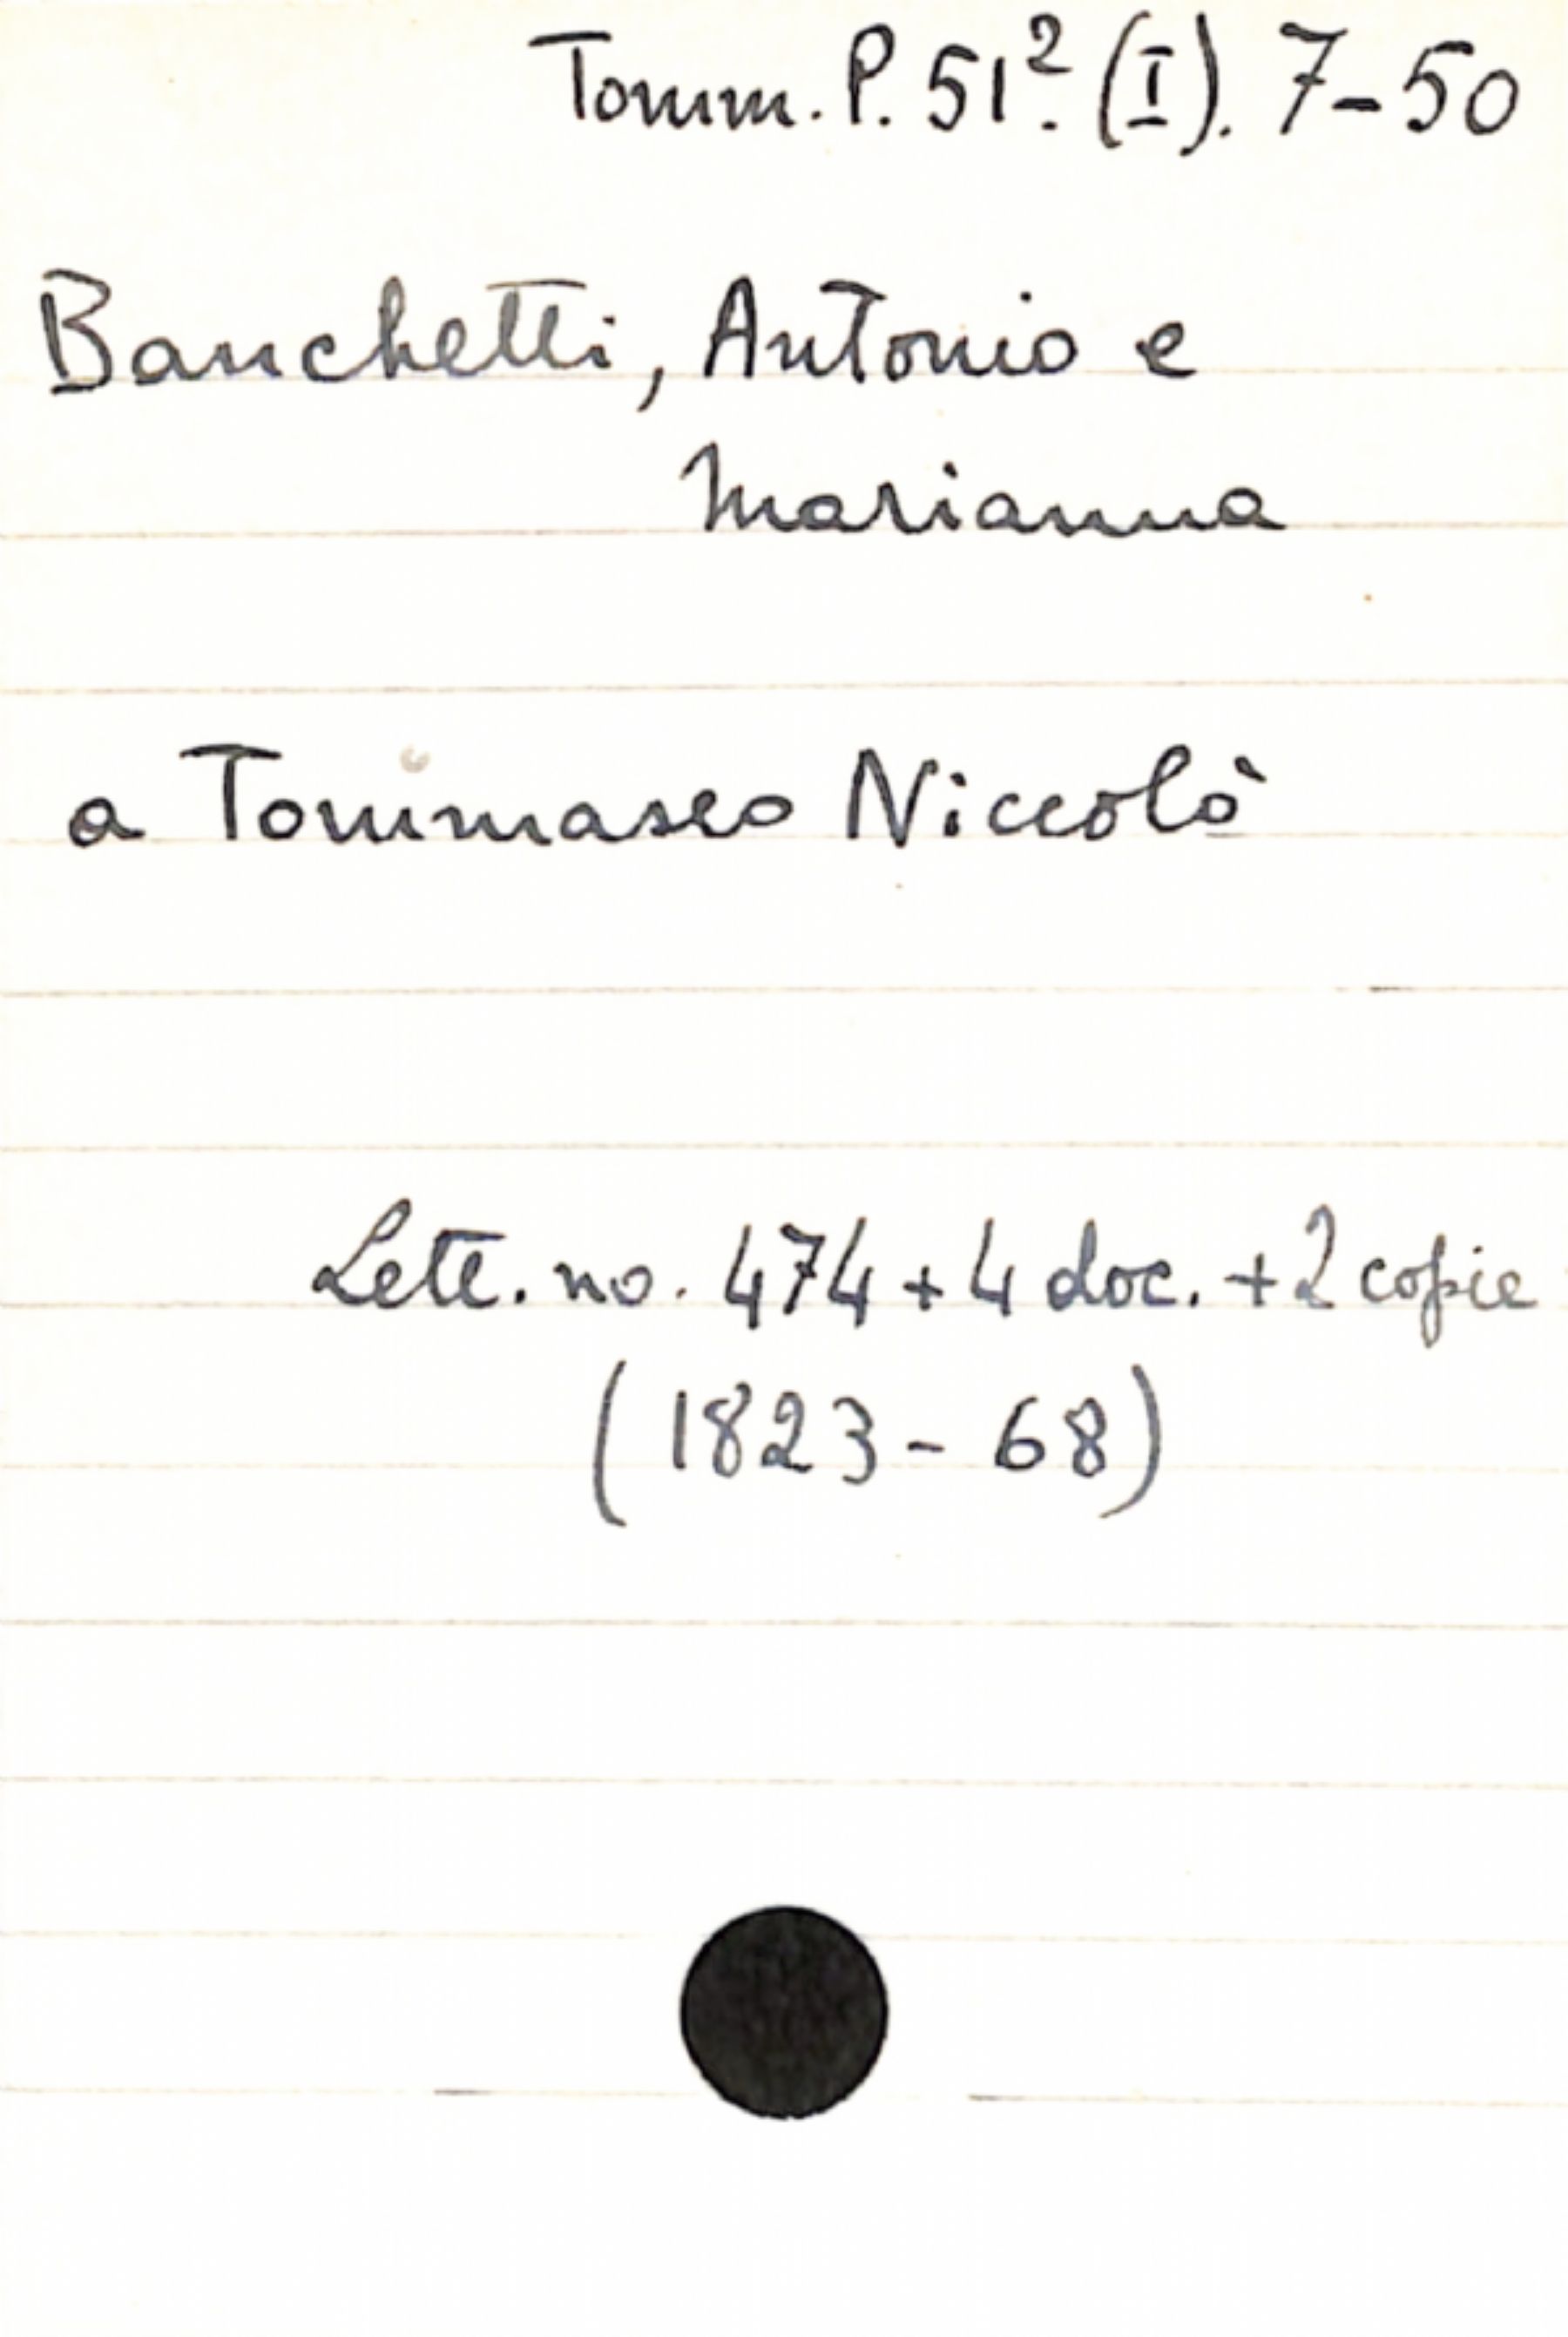 Tomm. P. 51². (I). 7-50
Banchetti, Antonio e
Marianna
a Tommaseo Niccolò
Lett. no. 474 + 4 doc. + 2 copie
(1823 - 68)